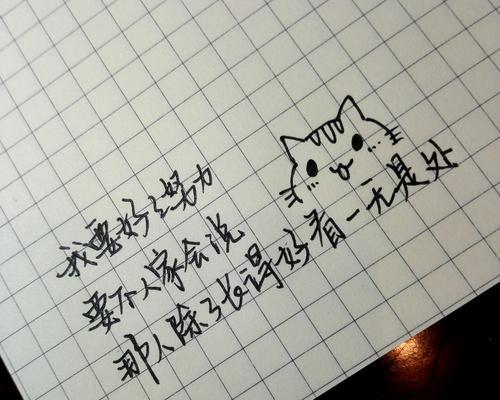 我要好好努力
要不人家会说
那人除了长得好看一无是处